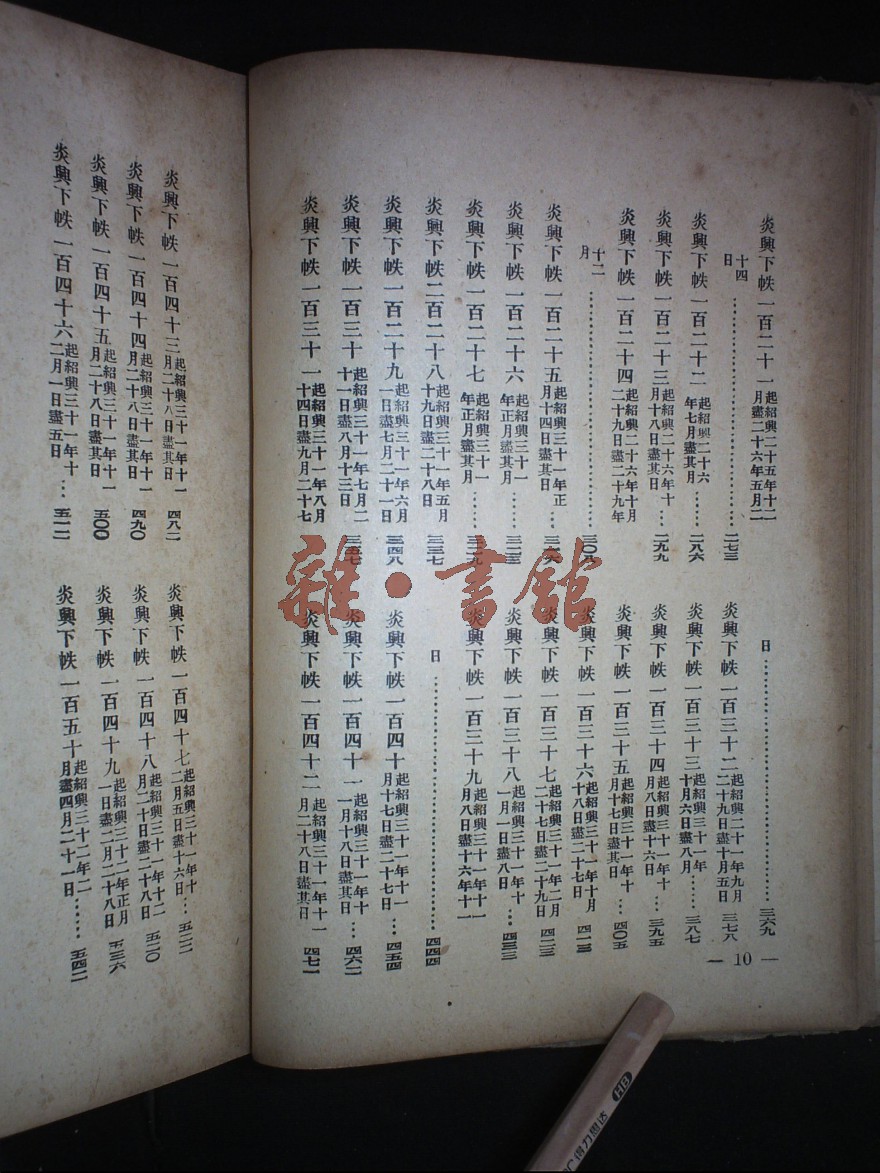 炎興下帙一百二十一 起紹興二十五年十二月盡二十六年五月二
十四日 …… 二七三
炎興下帙一百二十二 起紹興二十六年七月盡其月 …… 二八六
炎興下帙一百二十三 起紹興二十六年十月十八日盡其日 … 二九九
炎興下帙一百二十四 起紹興二十六年十月二十九日盡二十九年
十二月 …… 三〇八
炎興下帙一百二十五 起紹興三十一年正月十四日盡其日
炎興下帙一百二十六 起紹興三十一年正月盡其月 ……
炎興下帙一百二十七 起紹興三十一年正月盡其月 ……
炎興下帙二百二十八 起紹興三十一年五月十九日盡二十八日 三三七
炎興下帙一百二十九 起紹興三十一年六月一日盡七月二十一日 三四八
炎興下帙一百三十 起紹興三十一年七月二十一日盡八月十三日 三五七
炎興下帙一百三十一 起紹興三十一年八月十四日盡九月二十七
日 …… 三六九
炎興下帙一百三十二 起紹興三十一年九月二十九日盡十月五日 三七八
炎興下帙一百三十三 起紹興三十一年十月六日盡八月 …… 三八七
炎興下帙一百三十四 起紹興三十一年十月八日盡十六日 … 三九五
炎興下帙一百三十五 起紹興三十一年十月十七日盡其日 … 四〇五
炎興下帙一百三十六 起紹興三十一年十月十八日盡二十七日 四一三
炎興下帙一百三十七 起紹興三十一年二月二十七日盡二十九日 四二三
炎興下帙一百三十八 起紹興三十一年十一月一日盡八日 … 四三三
炎興下帙一百三十九 起紹興三十一年十一月八日盡十六年十一
日 …… 四四四
炎興下帙一百四十 起紹興三十一年十一月十七日盡二十七日 … 四五四
炎興下帙一百四十一 起紹興三十一年十一月十八日盡其日 … 四六二
炎興下帙一百四十二 起紹興三十一年十一月二十八日盡其日 四七一
— 10 —
炎興下帙一百四十三 起紹興三十一年十一月二十八日盡其日 四八二
炎興下帙一百四十四 起紹興三十一年十一月二十八日盡其日 四九〇
炎興下帙一百四十五 起紹興三十一年十一月二十八日盡其日 五〇〇
炎興下帙一百四十六 起紹興三十一年十二月一日盡五日 … 五一二
炎興下帙一百四十七 起紹興三十一年十二月五日盡十六日 … 五二二
炎興下帙一百四十八 起紹興三十一年十二月二十日盡二十八日 五三〇
炎興下帙一百四十九 起紹興三十二年正月一日盡二月二十八日 五三六
炎興下帙一百五十 起紹興三十二年二月盡四月二十一日 …… 五四二
雜·書館
得力思达 HB